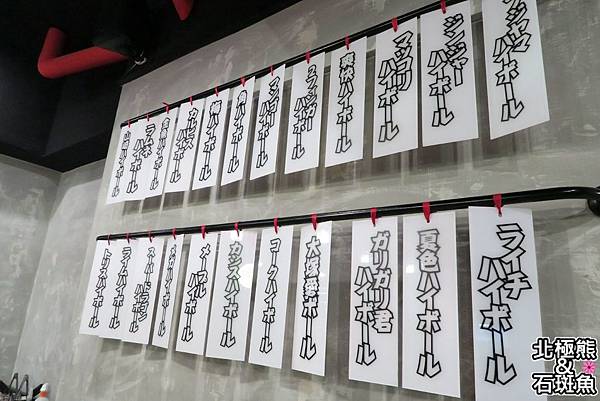 ジンジャー
ハイボール
マッコリ
ハイボール
爽快ハイボール
マンゴー
ハイボール
梅ハイボール
カルピス
ハイボール
ラムネ
ハイボール
山崎ハイボール
ライチ
ハイボール
夏色ハイボール
ガリガリ君
ハイボール
大塚愛ボール
コークハイボール
カシスハイボール
メープル
ハイボール
メガハイボール
スーパードラゴン
ハイボール
ラムハイボール
トリスハイボール
北極熊
&
石斑魚